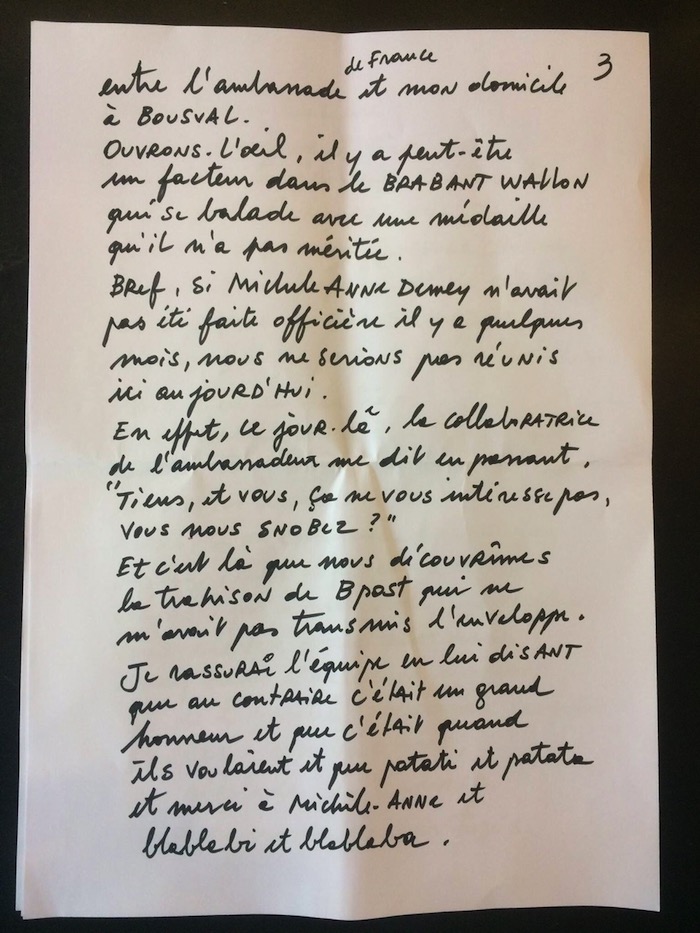 3
de France
entre l'ambassade et mon domicile
à BOUSVAL.
OUVRONS-L'œil, il y a peut-être
un facteur dans le BRABANT WALLON
qui se balade avec une médaille
qu'il n'a pas méritée.
BRef, si MichèleANNE Demey n'avait
pas été faite officière il y a quelques
mois, nous ne serions pas réunis
ici aujOURD'HUI.
En effet, ce jOUR-là, la collaboRATRICE
de l'ambassadeur me dit en passant,
"Tiens, et vous, ça ne vous intéresse pas,
vous nous SNOBEZ ?"
Et c'est là que nous découvrîmes
la trahison de Bpost qui ne
m'avait pas transmis l'enveloppe.
Je rassurai l'équipe en lui disANT
que au contRAIRE c'était un grand
honneur et que c'était quand
ils voulaient et que patati et patata
et merci à Michèle-ANNE et
blablabi et blablaba.